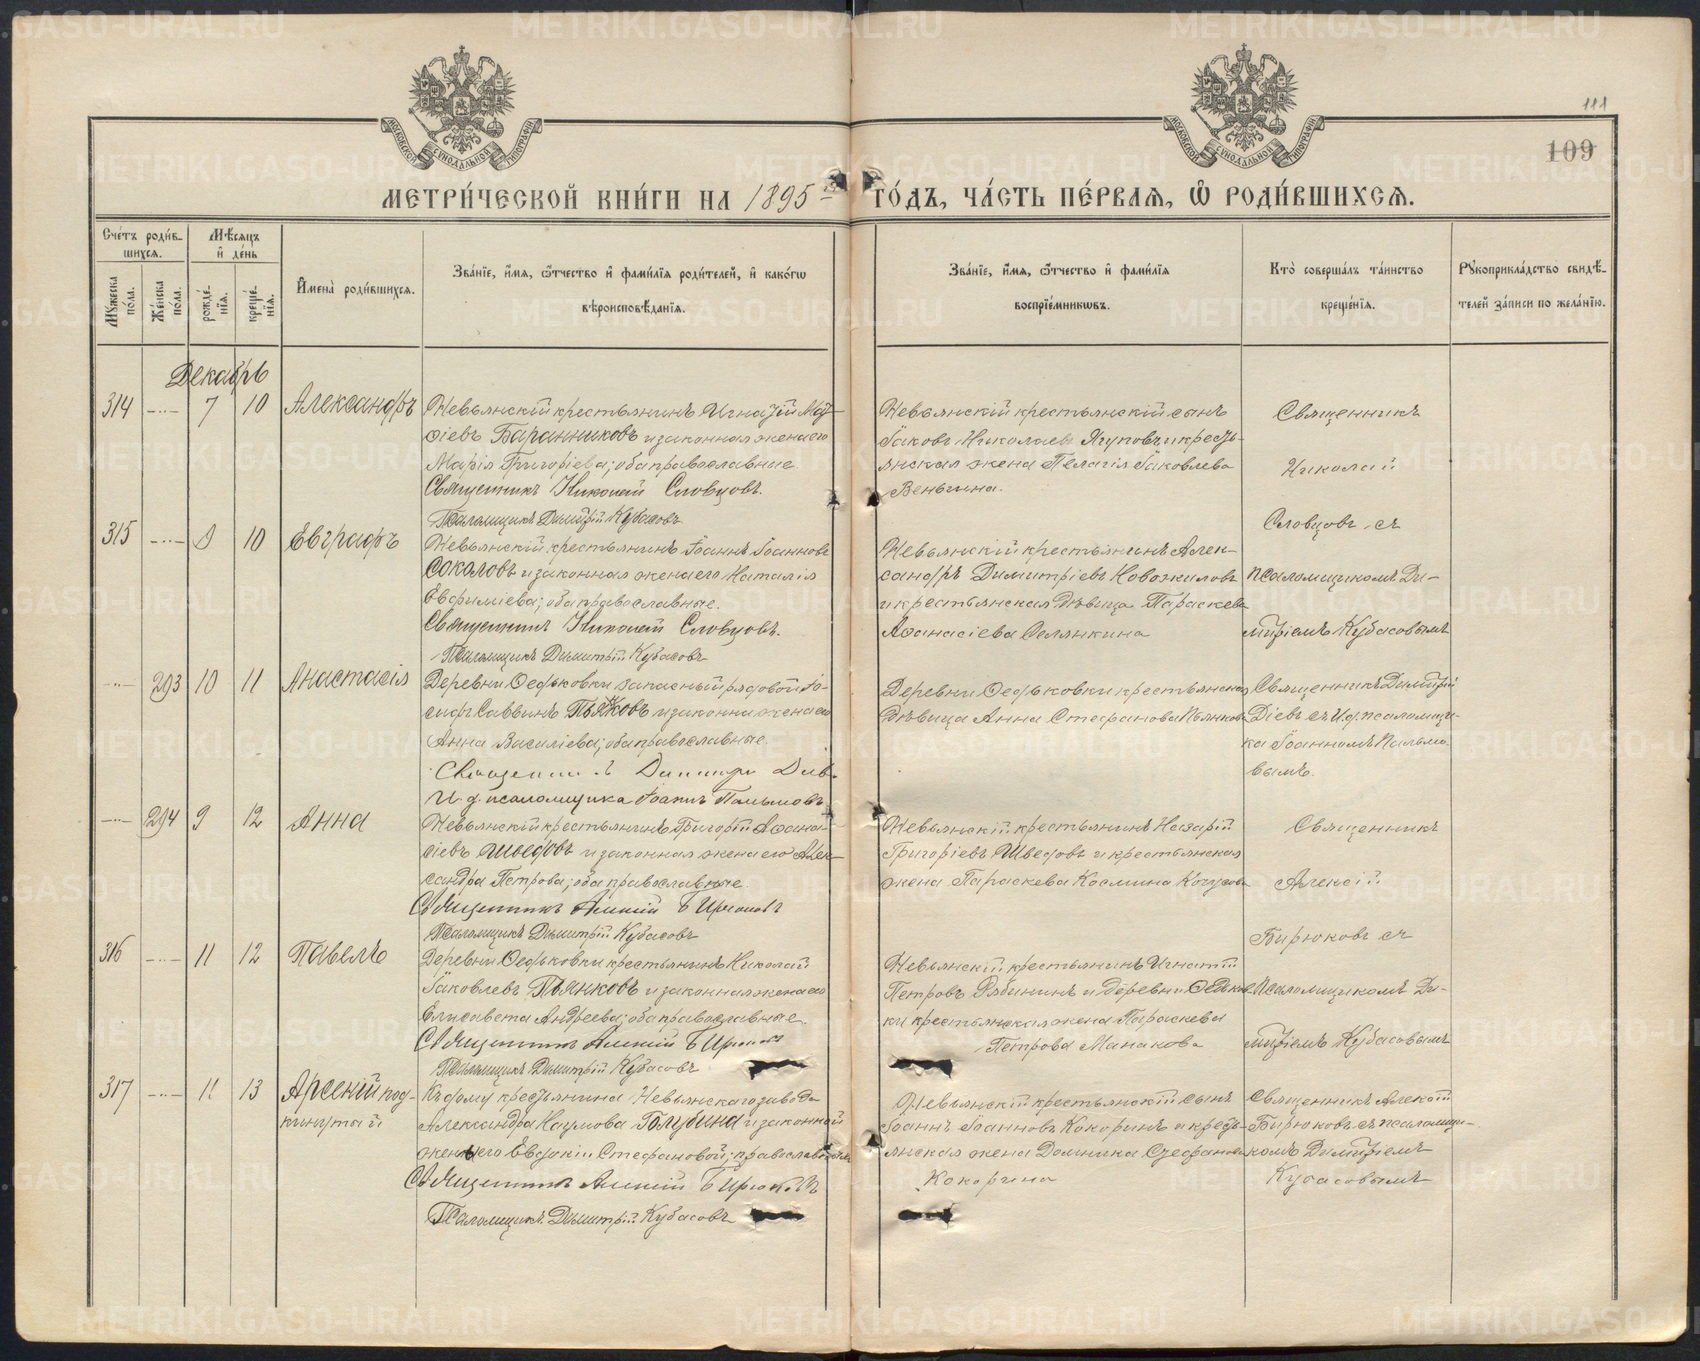 METRIKI.GASO-URAL.RU
МОСКОВСКОЙ СѴНОДАЛЬНОЙ ТИПОГРАФІИ
МОСКОВСКОЙ СѴНОДАЛЬНОЙ ТИПОГРАФІИ
111
109
МЕТРИ́ЧЕСКОЙ КНИ́ГИ НА 1895 й ГО́ДЪ, ЧА́СТЬ ПЕ́РВАЯ, Ѡ РОДИ́ВШИХСЯ.
Сче́тъ роди́в-
шихся.
Мꙋжеска по́ла.
Же́нска по́ла.
Мѣсяцъ
и҆ де́нь
рожде́-нїя.
креще́-нїя.
И҆мена̀ роди́вшихся.
Зва́нїе, и҆́мя, ѻ҆́тчество и҆ фами́лїя роди́телей, и҆ како́гѡ
вѣроисповѣ́данїя.
Зва́нїе, и҆́мя, ѻ҆́тчество и҆ фами́лїя
воспрїе́мникѡвъ.
Кто̀ соверша́лъ та́инство
креще́нїя.
Рꙋкоприкла́дство свидѣ́-
телей за́писи по жела́нїю.
Декабрь
314 —··— 7 10 Александръ
Невьянскій крестьянинъ Игнатій Мат-
ѳіевъ Баранниковъ и законная жена его
Марія Григоріева; оба православные.
Священникъ Николай Словцовъ.
Псаломщикъ Димитрій Кубасовъ
Невьянскій крестьянскій сынъ
Іаковъ Николаевъ Ягуповъ и кресть-
янская жена Пелагія Іаковлева
Веньгина.
Священникъ
Николай
Словцовъ съ
псаломщикомъ Ди-
митріемъ Кубасовымъ
315 —··— 8 10 Евграфъ
Невьянскій крестьянинъ Іоаннъ Іоанновъ
Соколовъ и законная жена его Наталія
Евфиміева; оба православные.
Священникъ Николай Словцовъ.
Псаломщикъ Димитрій Кубасовъ
Невьянскій крестьянинъ Алек-
сандръ Димитріевъ Новожиловъ
и крестьянская дѣвица Параскева
Аѳанасіева Селянкина
—··— 293 10 11 Анастасія
Деревни Ѳедьковки запасный рядовой Іо-
сифъ Саввинъ Пьянковъ и законная жена его
Анна Василіева; оба православные.
Священникъ Димитрій Діевъ
И. д. псаломщика Іоаннъ Пальмовъ
Деревни Ѳедьковки крестьянская
дѣвица Анна Стефанова Пьянкова
Священникъ Димитрій
Діевъ съ И.д. псаломщи-
ка Іоанномъ Пальмо-
вымъ.
—··— 294 9 12 Анна
Невьянскій крестьянинъ Григорій Аѳана-
сіевъ Шведовъ и законная жена его Алек-
сандра Петрова; оба православные.
Священникъ Алексій Бирюковъ
Псаломщикъ Димитрій Кубасовъ
Невьянскій крестьянинъ Назарій
Григоріевъ Шведовъ и крестьянская
жена Параскева Космина
Священникъ
Алексій
Бирюковъ съ
псаломщикомъ Ди-
митріемъ Кубасовымъ
316 —··— 11 12 Павелъ
Деревни Ѳедьковки крестьянинъ Николай
Іаковлевъ Пьянковъ и законная жена его
Елисавета Андреева; оба православные.
Священникъ Алексій Бирюковъ
Псаломщикъ Димитрій Кубасовъ
Невьянскій крестьянинъ Игнатій
Петровъ Рябининъ и деревни Ѳедьков-
ки крестьянская жена Параскева
Петрова Манакова
317 —··— 11 13 Арсеній под-
кинутый
Къ дому крестьянина Невьянскаго завода
Александра Наумова Голубина и законной
жены его Евдокіи Стефановой; православныхъ
Священникъ Алексій Бирюковъ
Псаломщикъ Димитрій Кубасовъ
Невьянскій крестьянскій сынъ
Іоаннъ Іоанновъ Кокоринъ и кресть-
янская жена Домника Стефанова
Кокорина
Священникъ Алексій
Бирюковъ съ псаломщи-
комъ Димитріемъ
Кубасовымъ